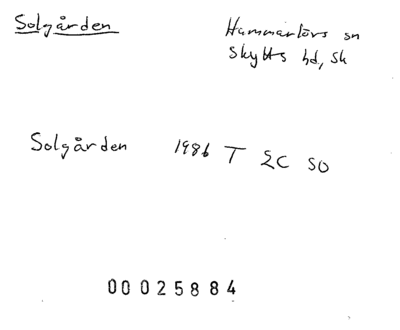 Solgården
Hammarlövs sn
Skytts hd, Sk
Solgården 1986 T SC SO
00025884